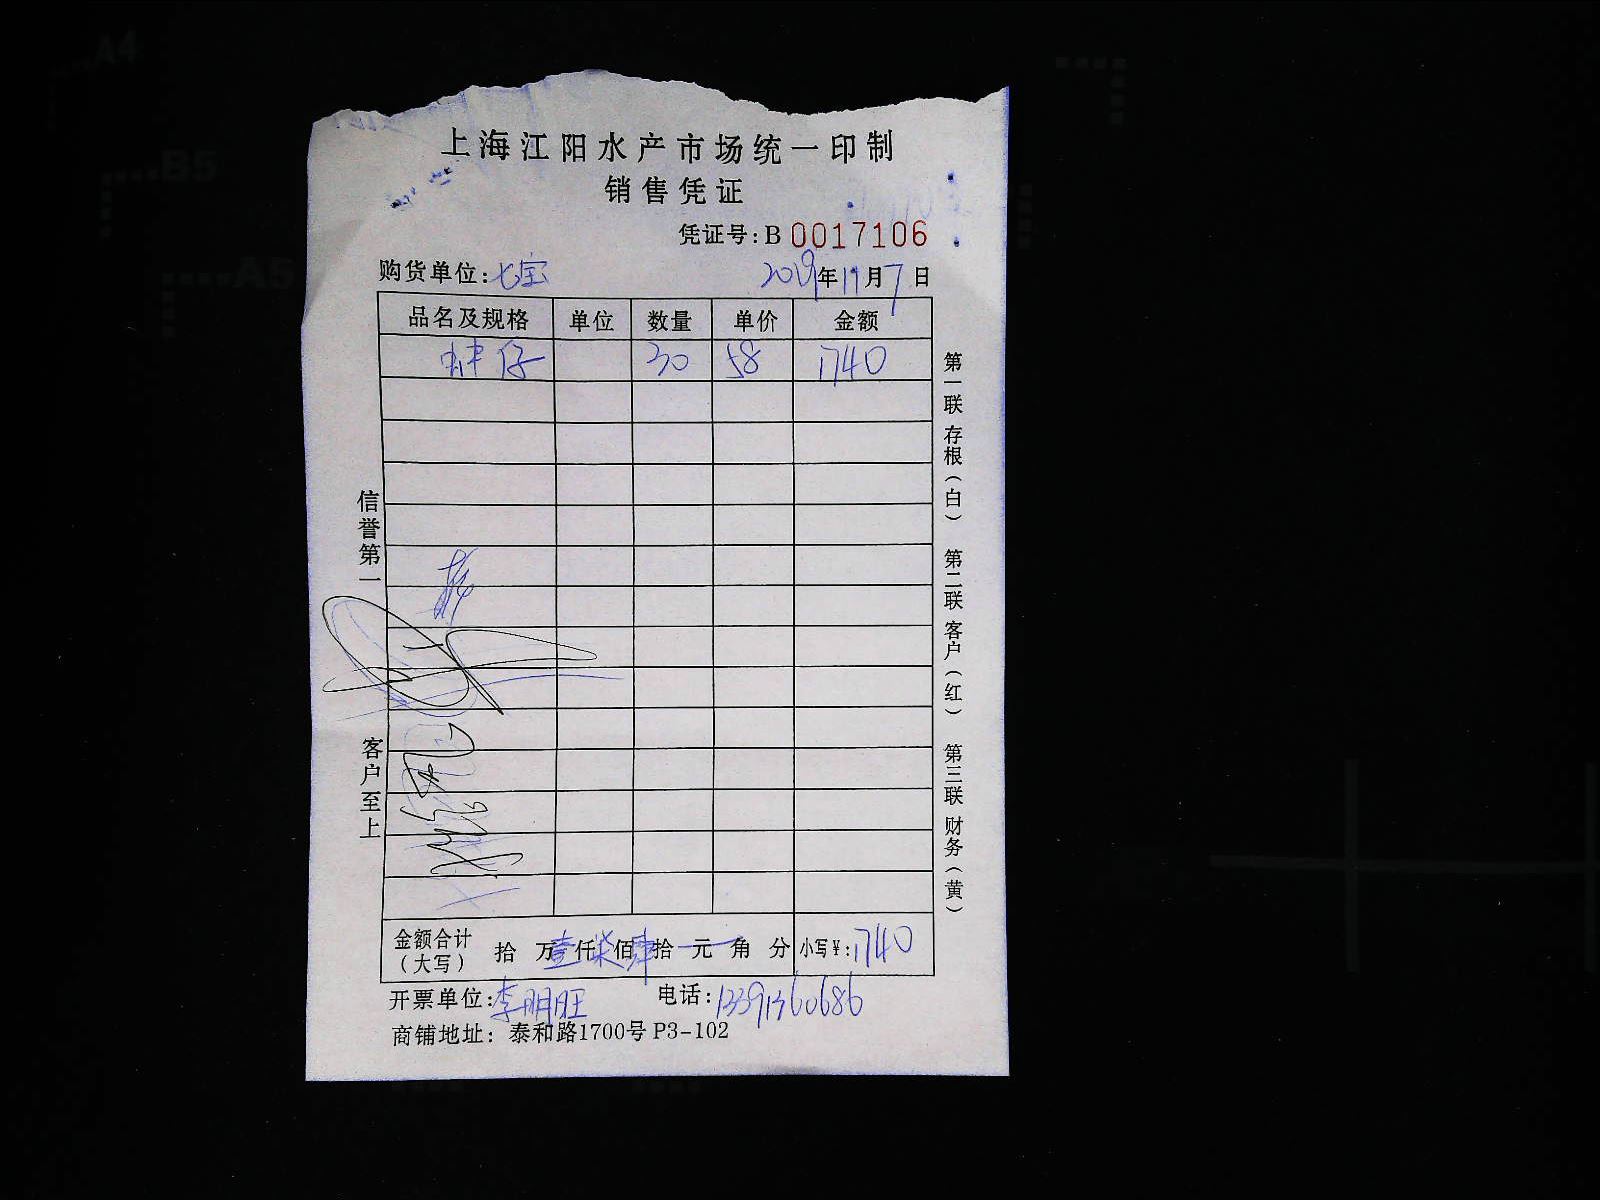 上海江阳水产市场统一印制
销售凭证
凭证号：B 0017106
购货单位：七宝 2019年11月7日
品名及规格 单位 数量 单价 金额
仔 30 58 1740
信誉第一 客户至上
第一联 存根（白） 第二联 客户（红） 第三联 财务（黄）
金额合计（大写） 拾 万壹仟柒佰肆拾 元 角 分 小写￥：1740
开票单位：李明旺 电话：13391360686
商铺地址：泰和路1700号 P3-102
A4
B5
A5